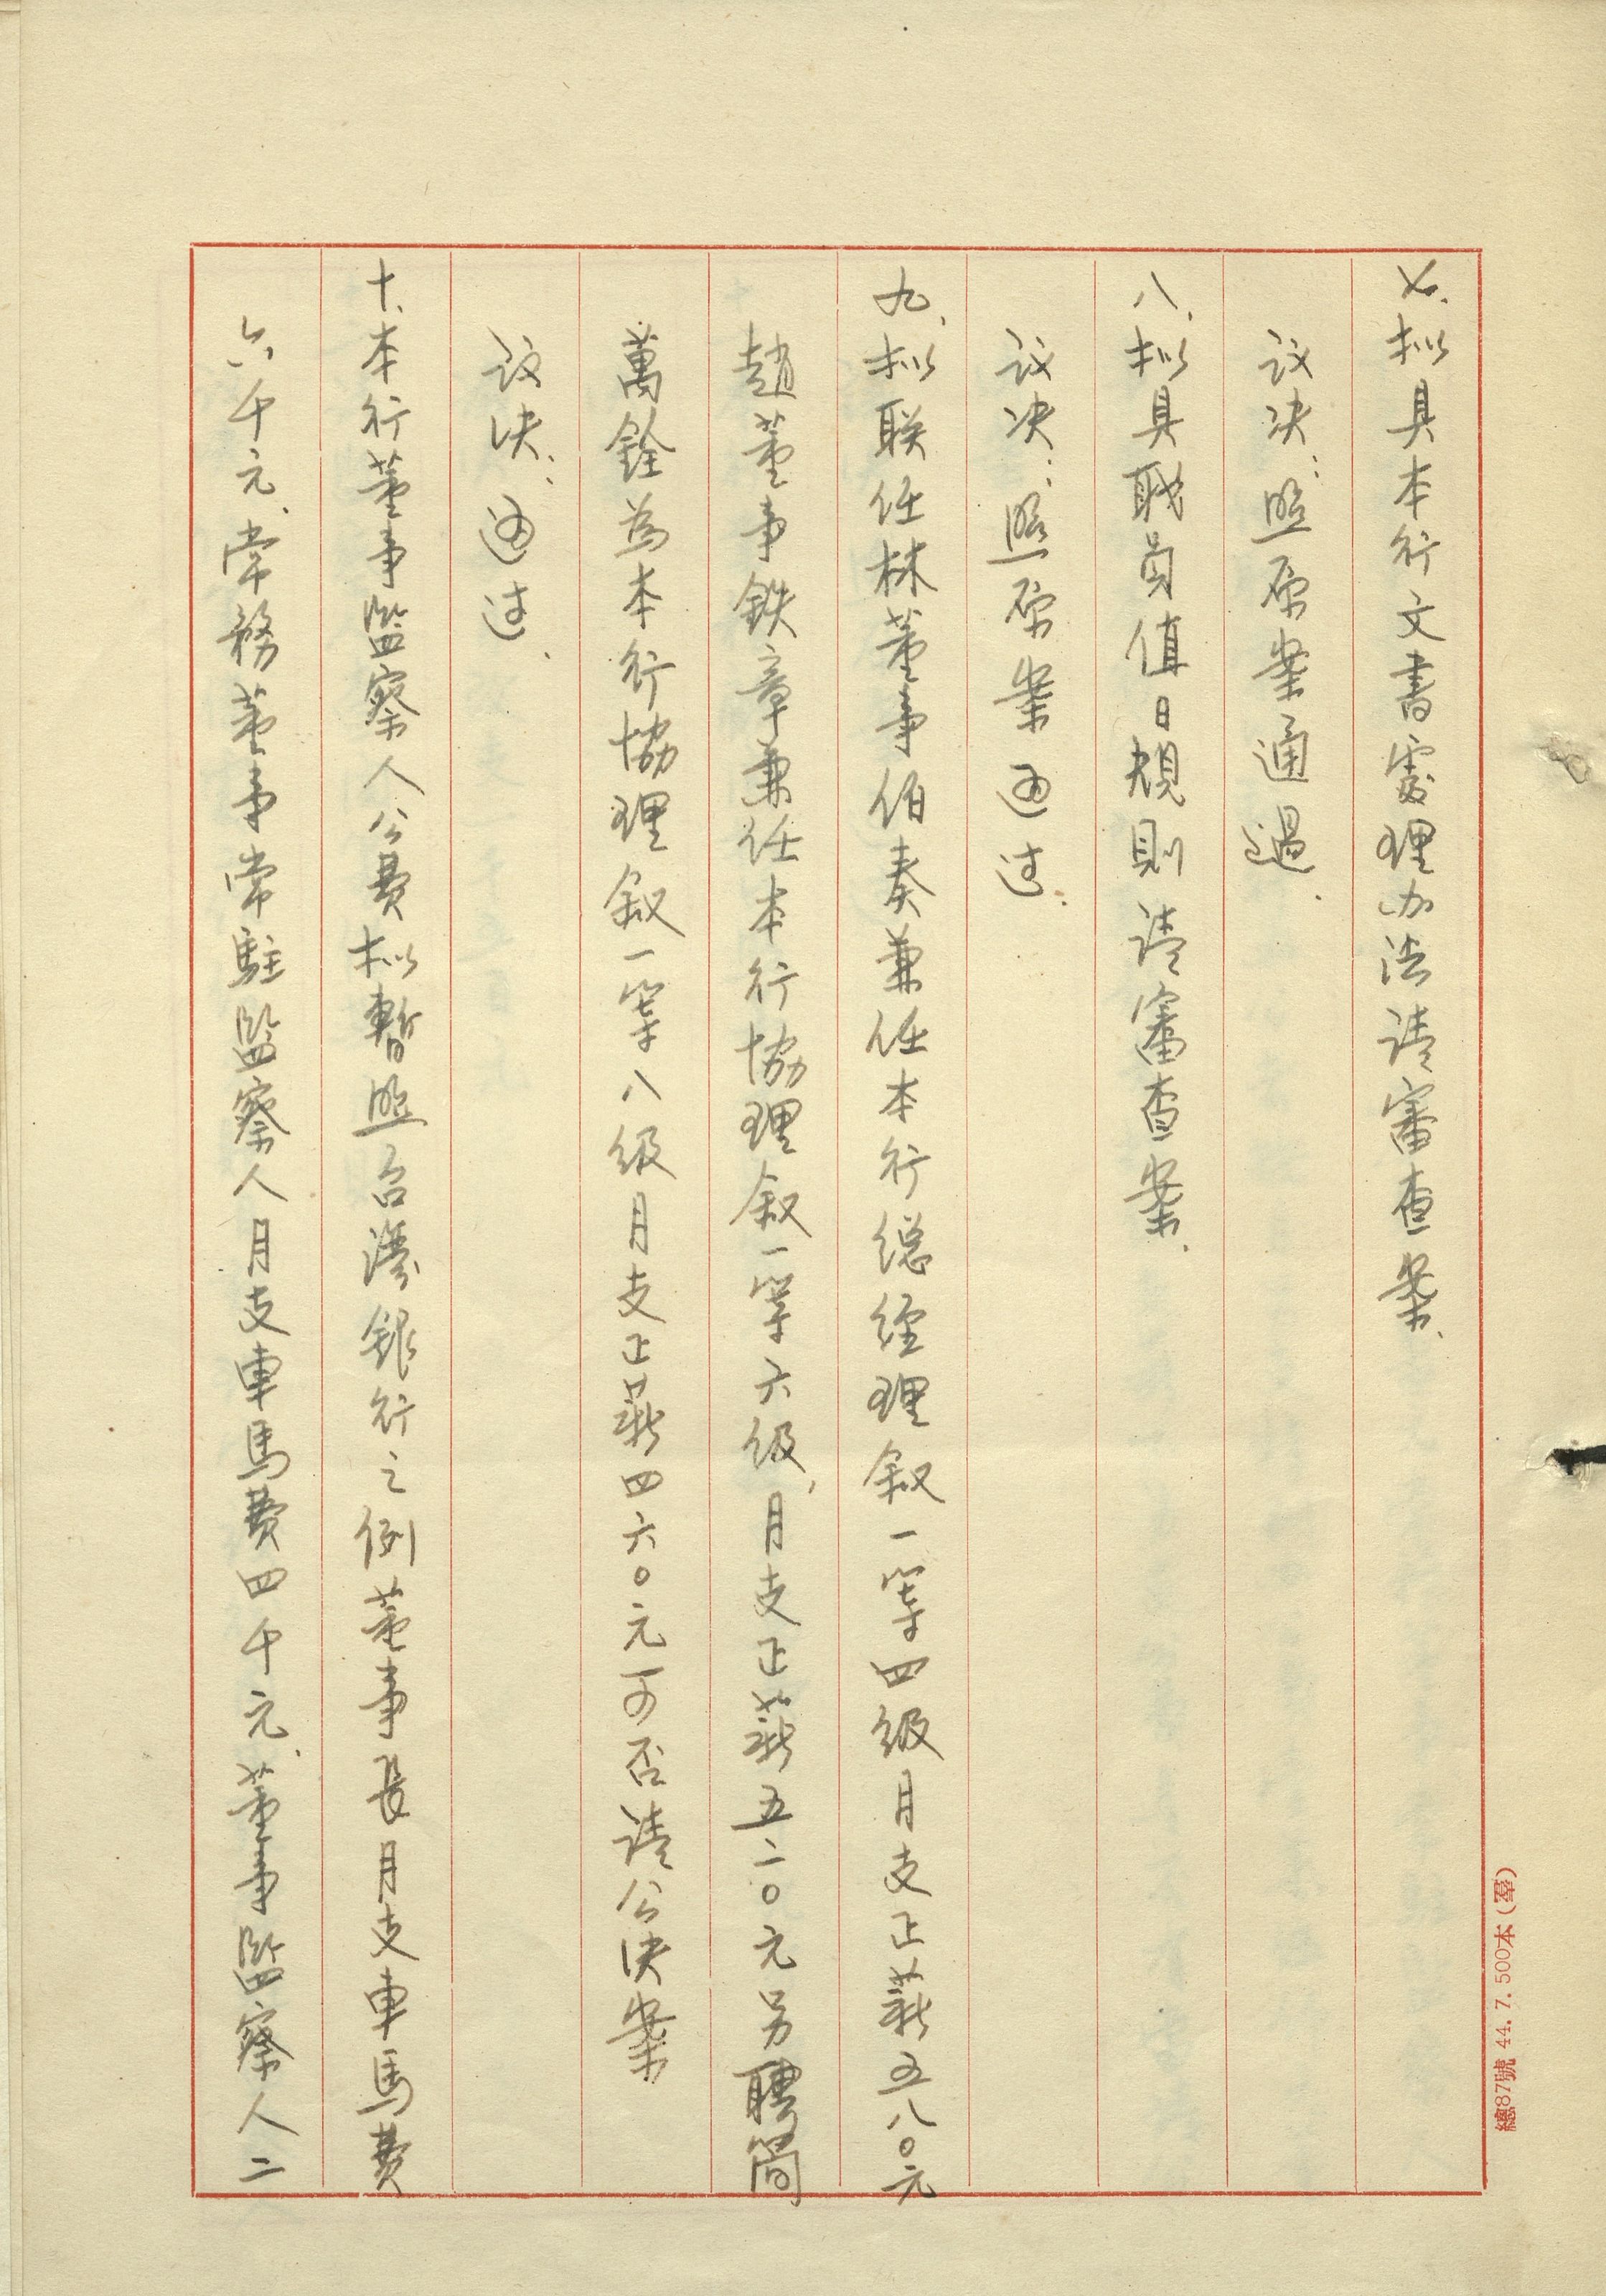 七、拟具本行文書處理办法请審查案、
议决：照原案通過、
八、拟具职員值日規則请審查案、
议决：照原案通过、
九、拟联任林董事伯奏兼任本行總經理叙一等四級月支正薪五八〇元
趙董事鉄章兼任本行協理叙一等六級，月支正薪五二〇元另聘简
萬銓為本行協理叙一等八級月支正薪四六〇元可否请公決案
议決：通过、
十、本行董事監察人公費拟暫照台灣銀行之例董事長月支車馬費
六千元、常務董事常駐監察人月支車馬費四千元、董事監察人二
總87號 44. 7. 500本 (羣)